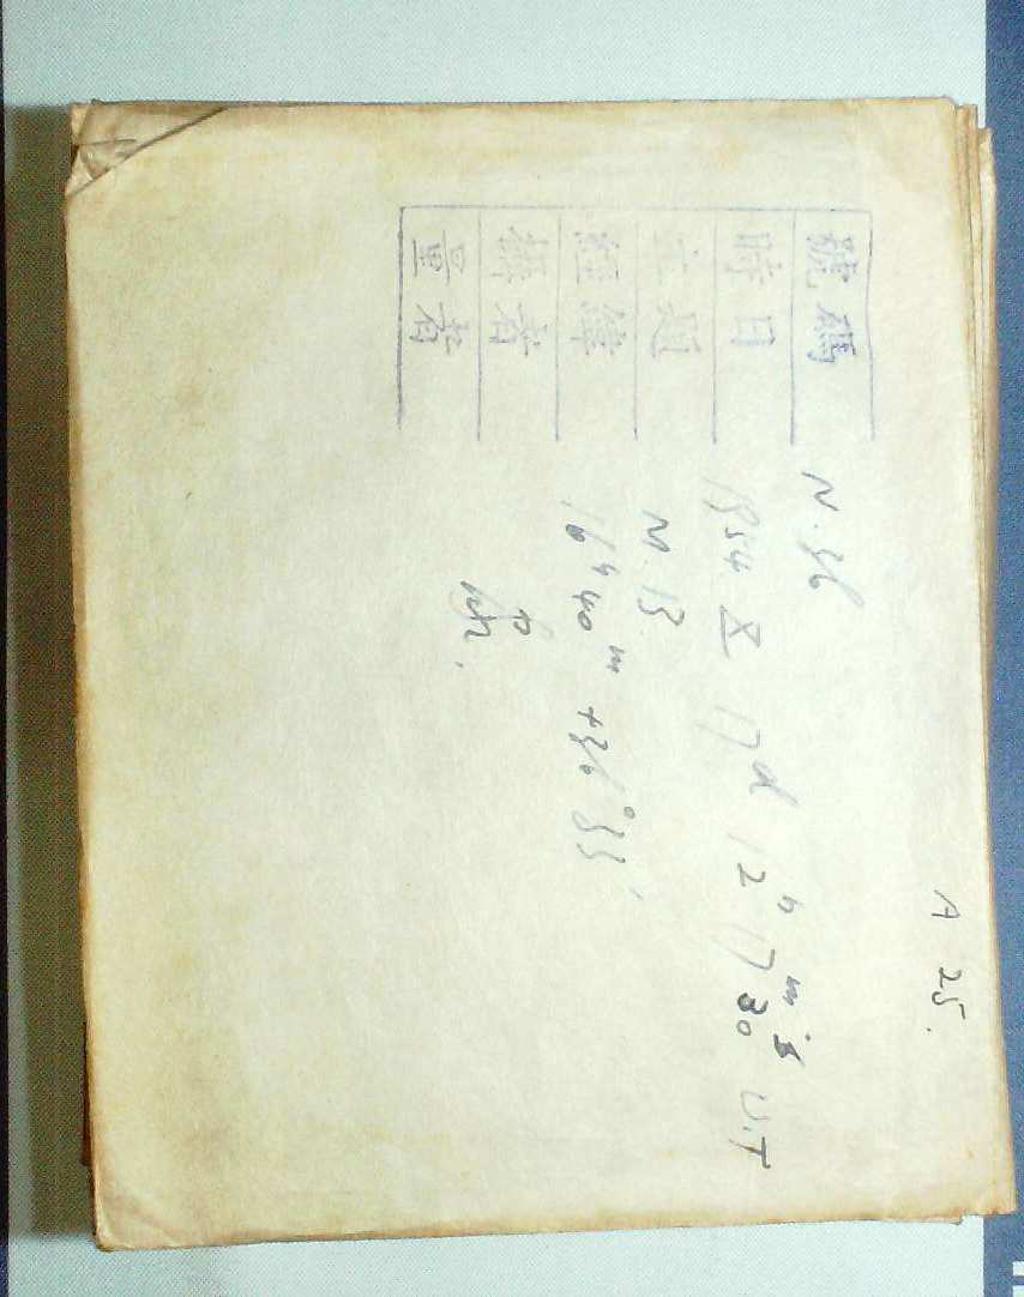 A 25.
號碼 N.36
時日 1954 X 17d 12h 17m 30s U.T
主題 M.13
經緯 16h 40m +36°33'
攝者
量者